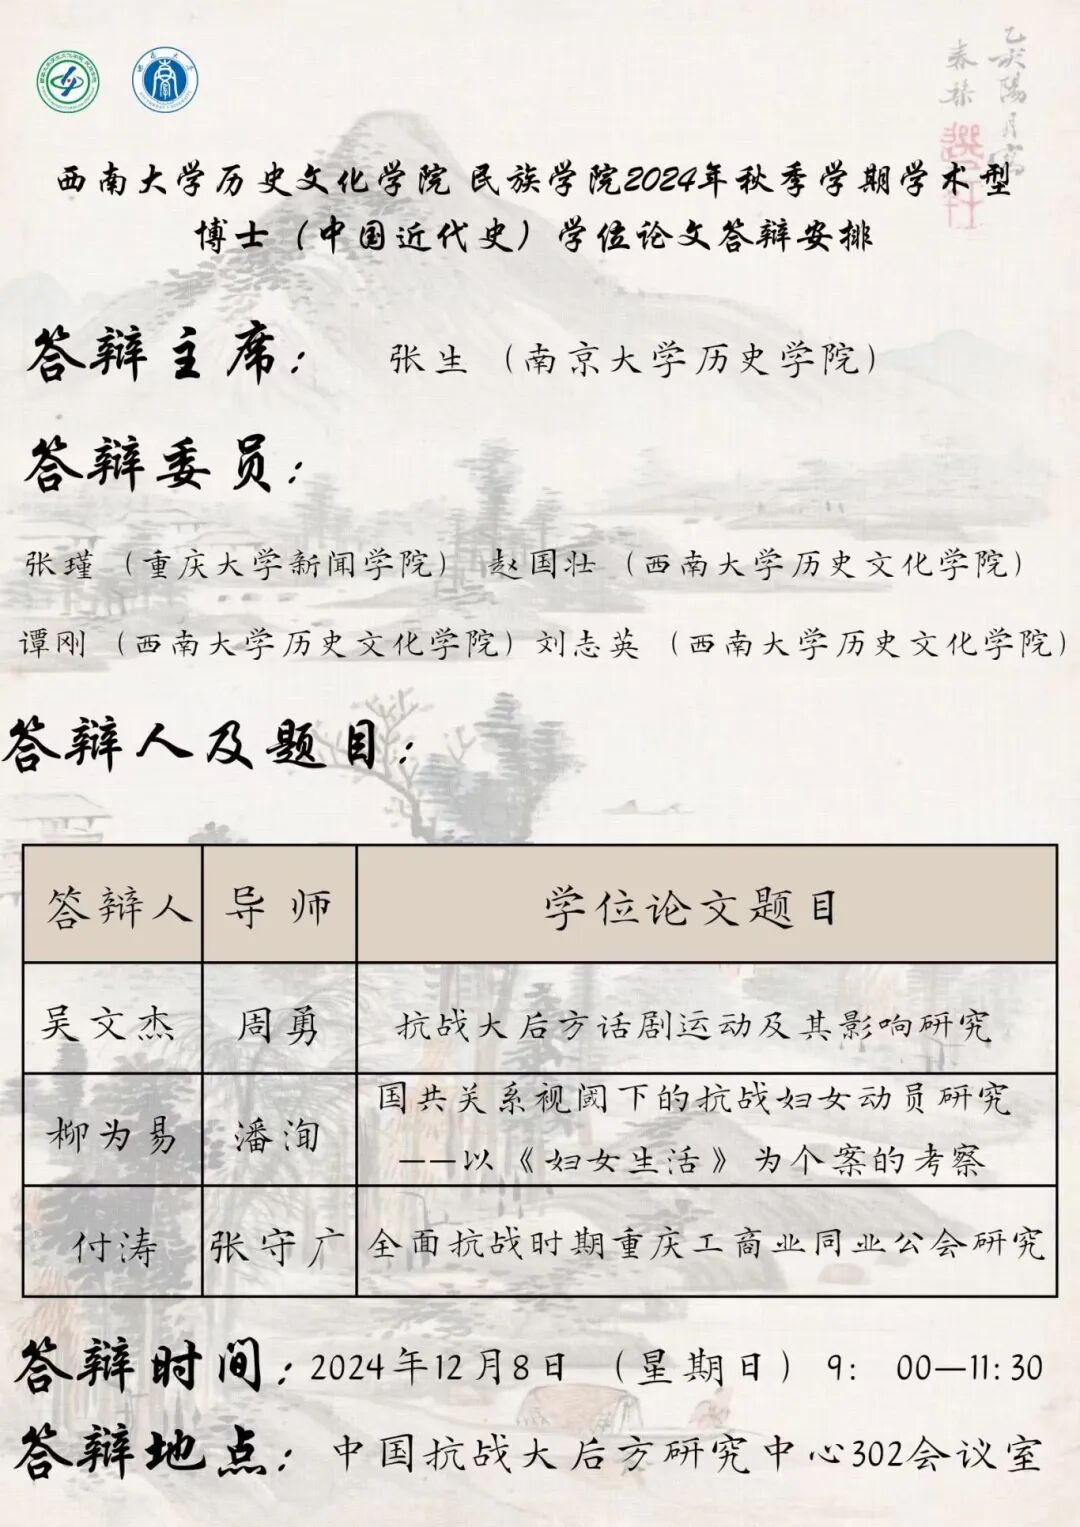 西南大学历史文化学院 民族学院2024年秋季学期学术型
博士（中国近代史）学位论文答辩安排
答辩主席： 张生（南京大学历史学院）
答辩委员：
张瑾（重庆大学新闻学院） 赵国壮（西南大学历史文化学院）
谭刚（西南大学历史文化学院）刘志英（西南大学历史文化学院）
答辩人及题目：
答辩人 导师 学位论文题目
吴文杰 周勇 抗战大后方话剧运动及其影响研究
柳为易 潘洵 国共关系视阈下的抗战妇女动员研究
——以《妇女生活》为个案的考察
付涛 张守广 全面抗战时期重庆工商业同业公会研究
答辩时间：2024年12月8日（星期日）9：00—11:30
答辩地点：中国抗战大后方研究中心302会议室